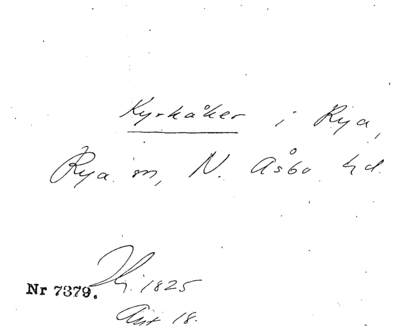 Kyrkåker i Rya,
Rya sn, N. Åsbo hd.
1825
Nr 7379.
18.